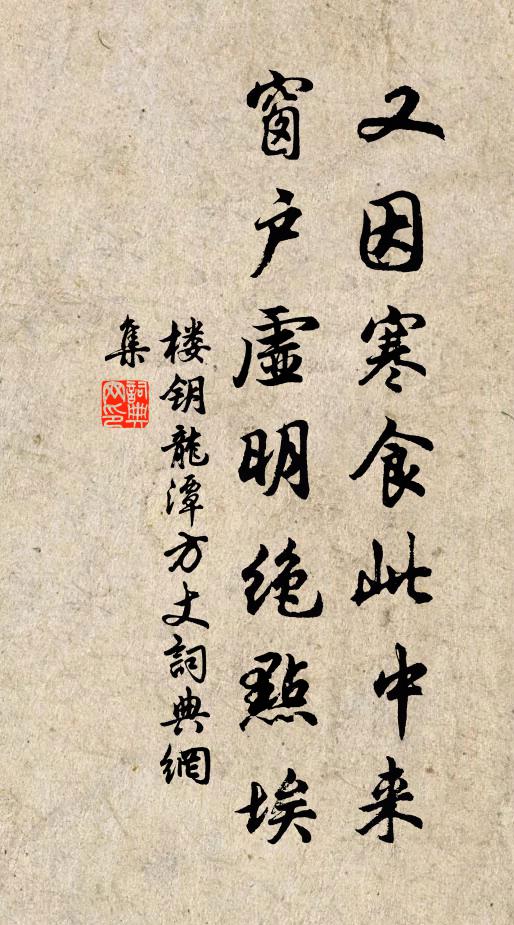 又因寒食此中来
窗户虚明绝點埃
楼钥龍潭方丈詞典網
集
詞典
网印